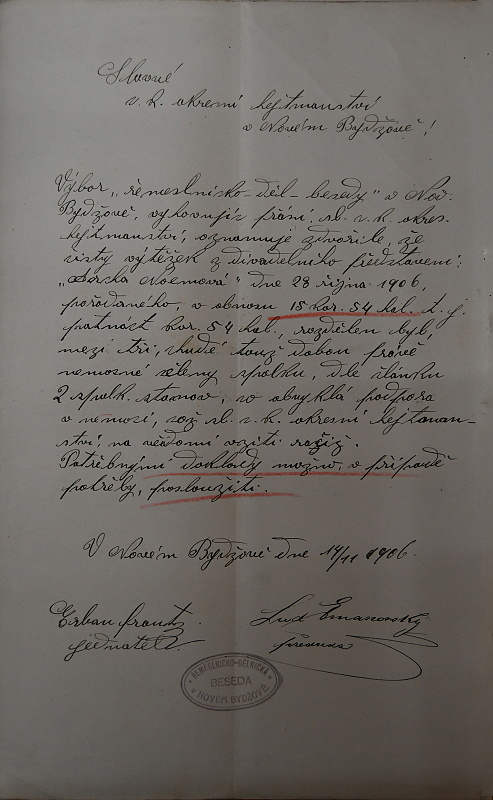 Slavné
c. k. okresní hejtmanství
v Novém Bydžově!
Výbor „řemeslnicko-děl- besedy" v Nov.
Bydžově, vyhovujíc přání sl. c. k. okres.
hejtmanství, oznamuje zdvořile, že
čistý výtěžek z divadelního představení:
dne 28 října 1906,
pořádaného, v obnosu 15 kor. 54 hal. t. j.
patnáct kor. 54 hal., rozdělen byl,
mezi tři, chudé touž dobou právě
nemocné členy spolku, dle článku
2 spolk. stanov, co obvyklá podpora
v nemoci, což sl. c. k. okresní hejtman-
ství, na vědomí vzíti račiž.
Potřebnými doklady možno, v případě
potřeby, posloužiti.
V Novém Bydžově dne 14/11 1906.
Erban Frant.
jednatel
předseda
ŘEMESLNICKO-DĚLNICKÁ
BESEDA
V NOVÉM BYDŽOVĚ